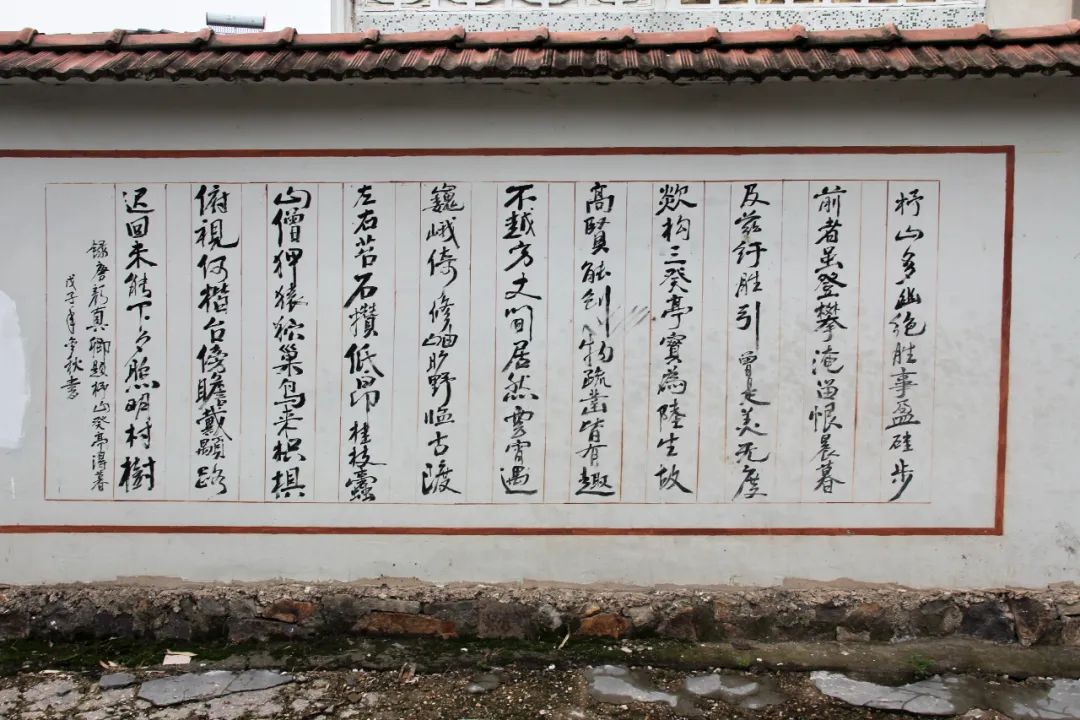 杼山多幽绝胜事盈硅步
前者虽登攀淹留恨晨暮
及兹纡胜引曾是美无度
欻构三癸亭實為陸生故
高賢能创物疏凿皆有趣
不越方丈间居然雲霄遇
巍峨倚修岫旷野临古渡
左右苔石攒低昂桂枝蠹
山僧狎猿狖巢鸟来枳椇
俯視何楷台傍瞻戴顒路
迟回未能下夕照明村樹
録唐颜真卿题杼山癸亭得暮
戊子年孟秋書